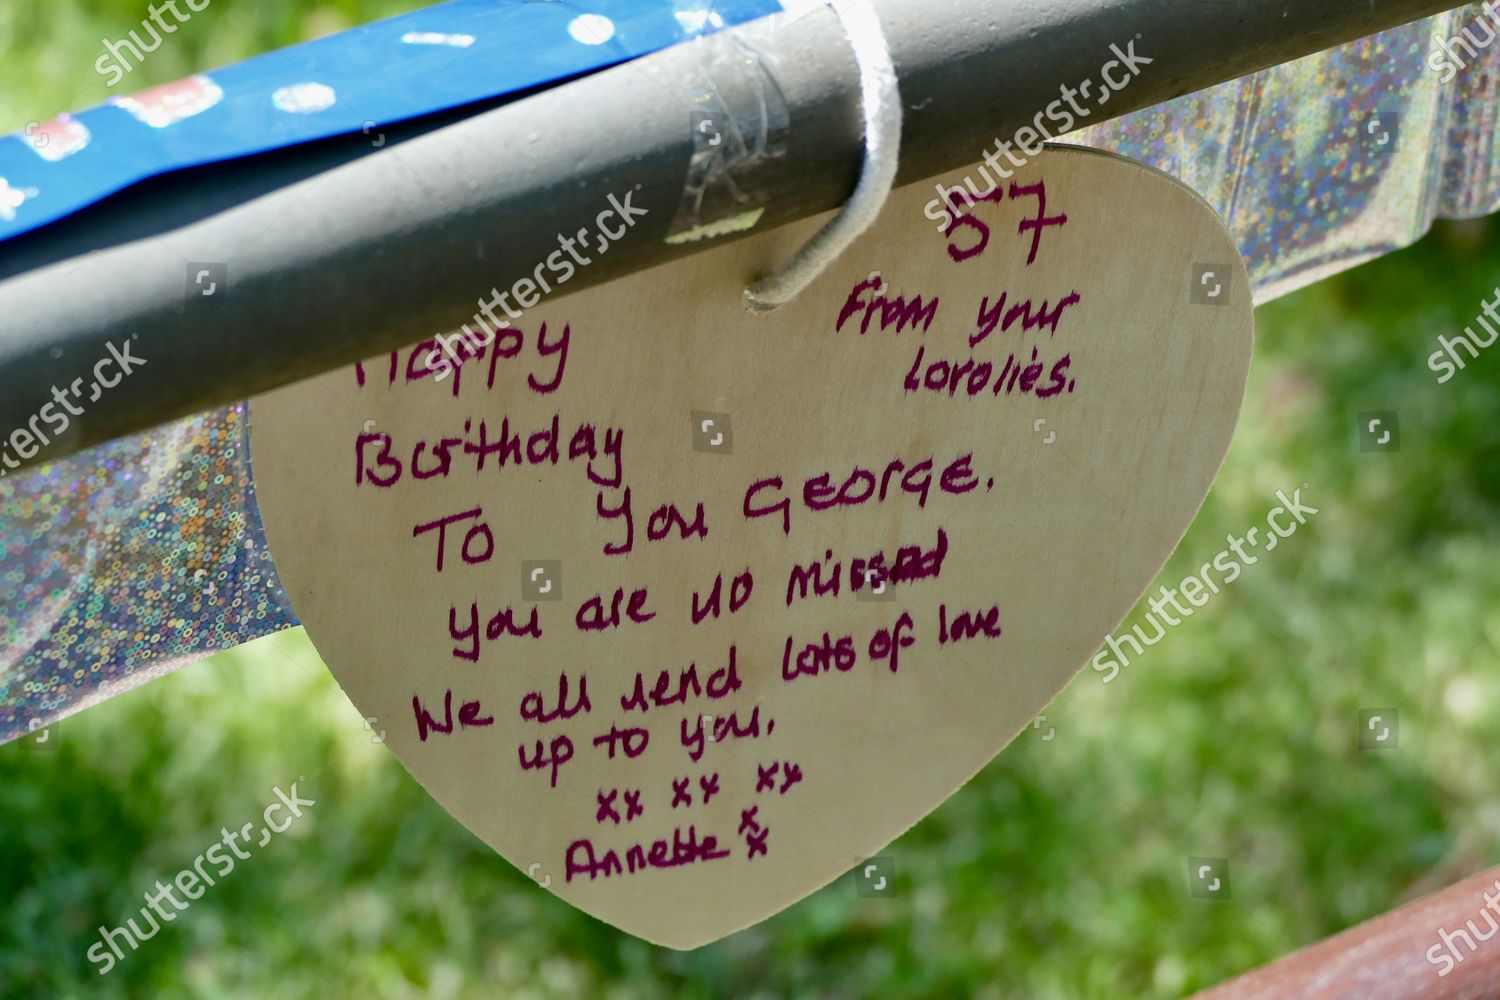 57
From your
Lovelies.
Happy
Birthday
To You George.
You are so missed
We all send lots of love
up to you.
xx xx xx
Annette x
x
shutterstock
shutterstock
shutterstock
shutterstock
shutterstock
shutterstock